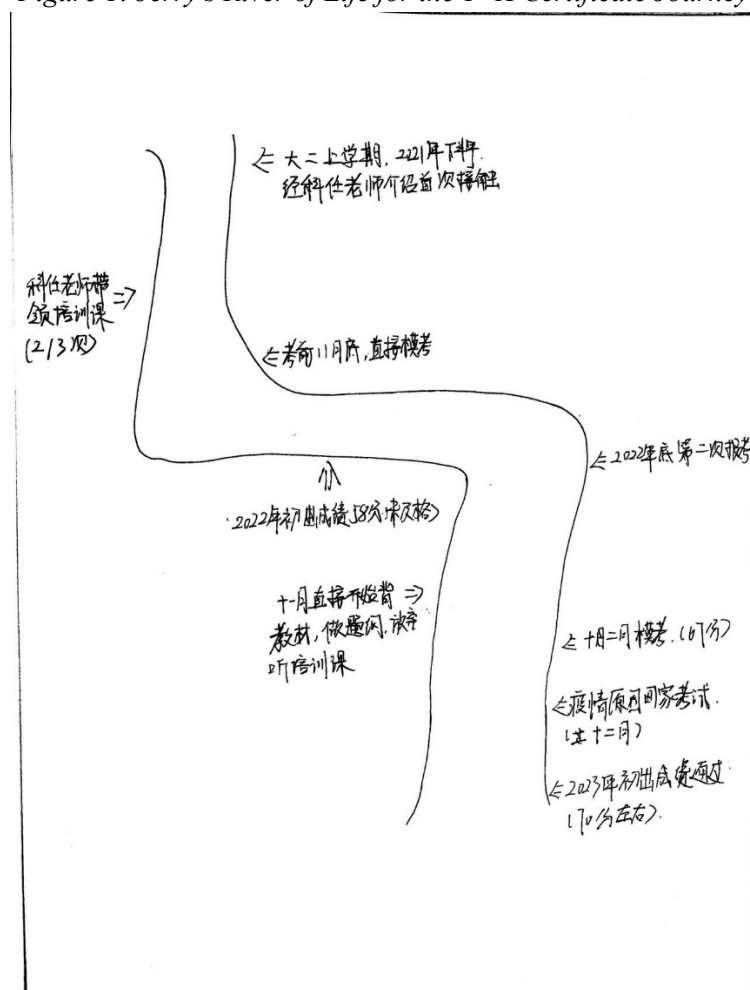 ⇐ 大二上学期, 2021年下半年.
经科任老师介绍首次接触
科任老师带 ⇒
领培训课
(2/3次)
⇐考前11月底,直接模考
⇐2022年底第二次报考
⇑
2022年初出成绩58分(未及格)
十一月直接开始背 ⇒
教材, 做题, 放弃
听培训课
⇐ 十月二月模考. (67分)
⇐疫情原因回家考试.
(过十二月)
⇐2023年初出成绩通过
(70分左右).